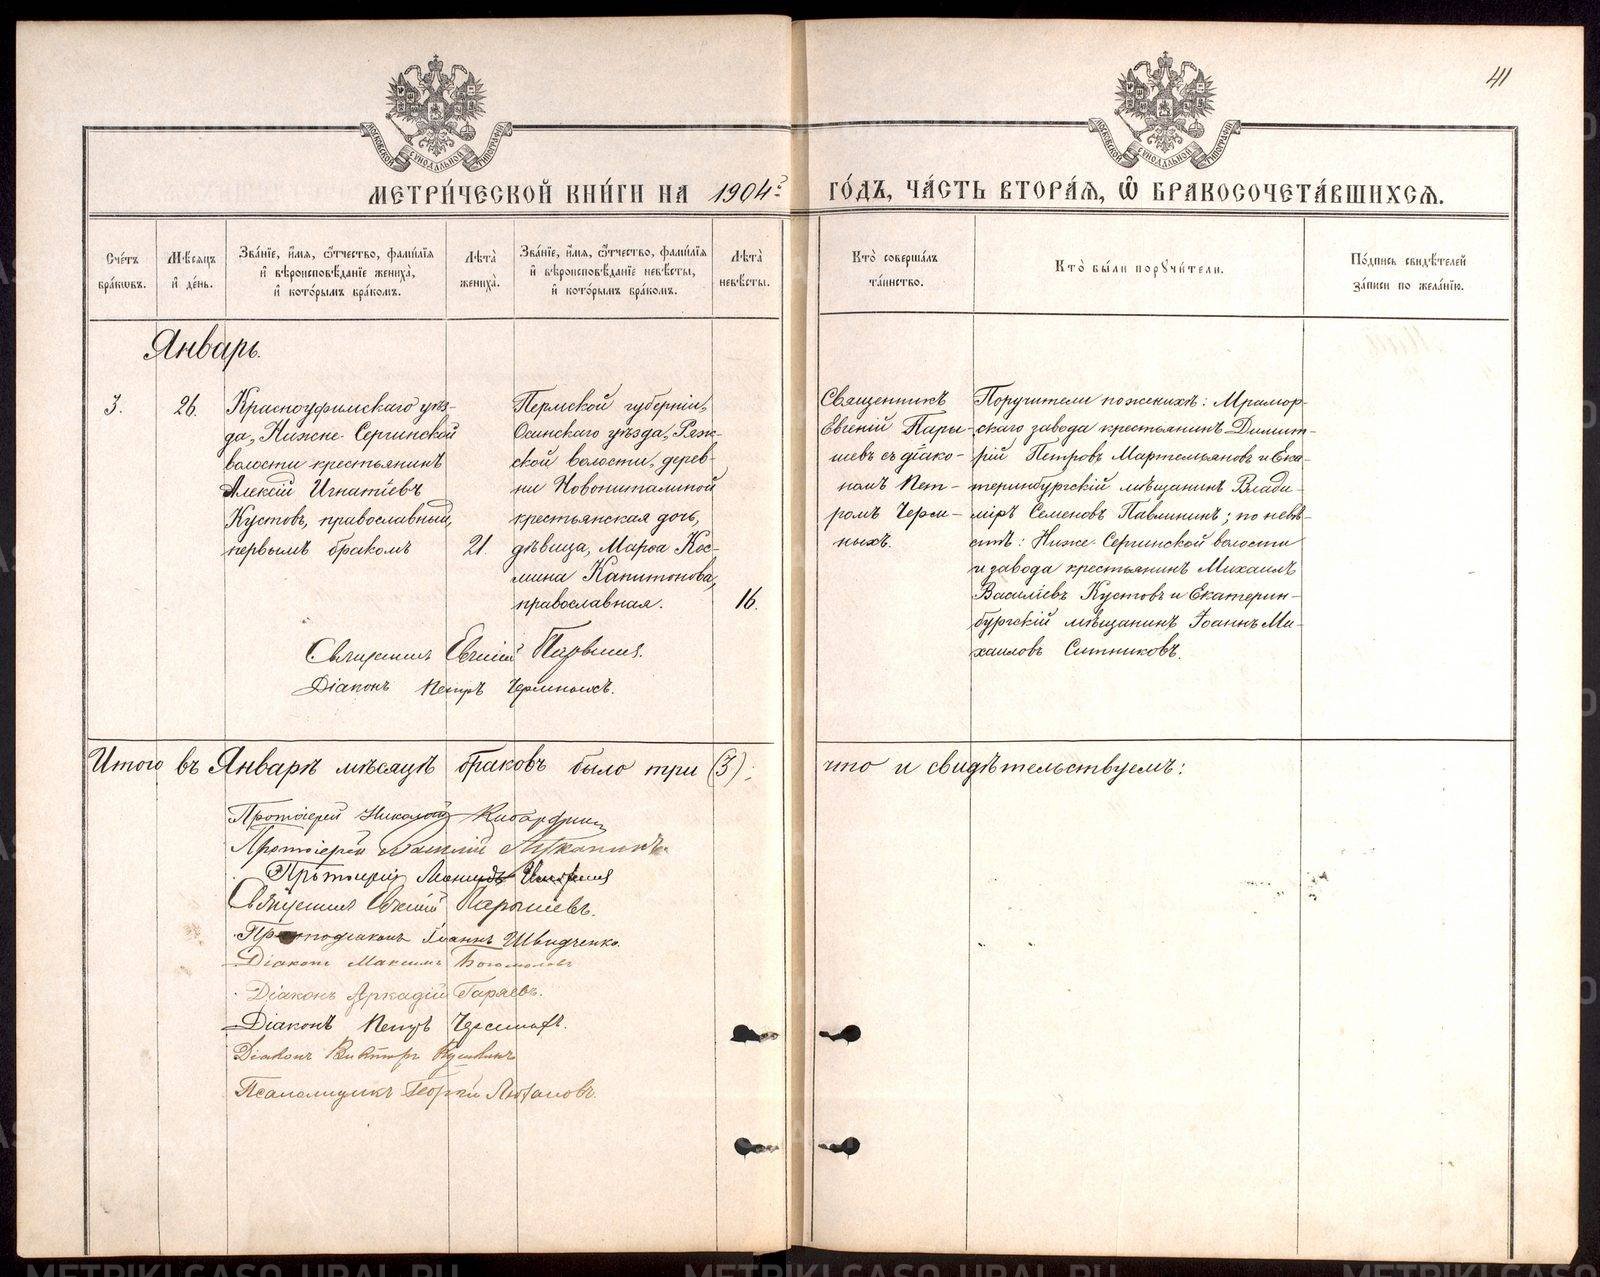 41
МОСКОВСКОЙ СУНОДАЛЬНОЙ ТИПОГРАФІИ
МОСКОВСКОЙ СУНОДАЛЬНОЙ ТИПОГРАФІИ
МЕТРИ́ЧЕСКОЙ КНИ́ГИ НА 1904 г̃ ГО́ДЪ, ЧА́СТЬ ВТОРА́Я, Ѽ БРАКОСОЧЕТА́ВШИХСѦ.
Сче́тъ
бра́кѡвъ.
Мѣ́сѧцъ
и҆ де́нь.
Зва́нїе, и҆́мѧ, ѻ҆́тчество, фами́лїѧ
и҆ вѣроисповѣ́данїе жениха̀,
и҆ кото́рымъ бра́комъ.
Лѣ́та
жениха̀.
Зва́нїе, и҆́мѧ, ѻ҆́тчество, фами́лїѧ
и҆ вѣроисповѣ́данїе невѣ́сты,
и҆ кото́рымъ бра́комъ.
Лѣ́та
невѣ́сты.
Кто̀ соверша́лъ
та́инство.
Кто̀ бы́ли порꙋчи́тели.
По́дпись свидѣ́телей
за́писи по жела́нїю.
Январь.
3.
26.
Красноуфимскаго уѣз-
да, Нижне-Сергинской
волости крестьянинъ
Алексій Игнатіевъ
Кустовъ, православный,
первымъ бракомъ
21.
Пермской губерніи,
Осинскаго уѣзда, Ряж-
ской волости, дерев-
ни
крестьянская дочь,
дѣвица, Марѳа Кос-
мина Капитонова,
православная.
16.
Священникъ
Евгеній Пары-
шевъ съ діако-
номъ Пет-
ромъ Черм-
ныхъ.
Поручители по женихѣ: Мрамор-
скаго завода крестьянинъ Димит-
рій Петровъ Мартемьяновъ и Ека-
теринбургскій мѣщанинъ Влади-
міръ Семеновъ Павлининъ; по невѣ-
стѣ: Ниже-Сергинской волости
и завода крестьянинъ Михаилъ
Василіевъ Кустовъ и Екатерин-
бургскій мѣщанинъ Іоаннъ Ми-
хаиловъ Ситниковъ.
Священникъ Евгеній Парышевъ.
Діаконъ Петръ Чермныхъ.
Итого въ Январѣ мѣсяцѣ браковъ было три (3); что и свидѣтельствуемъ:
Протоіерей Николай
Протоіерей
Протоіерей
Священникъ Евгеній Парышевъ.
Протодіаконъ Іоаннъ Швидченко.
Діаконъ Максимъ Богомоловъ
Діаконъ Аркадій Гаряевъ.
Діаконъ Петръ Чермныхъ.
Діаконъ Викторъ
Псаломщикъ Георгій
METRIKI.GASO-URAL.RU